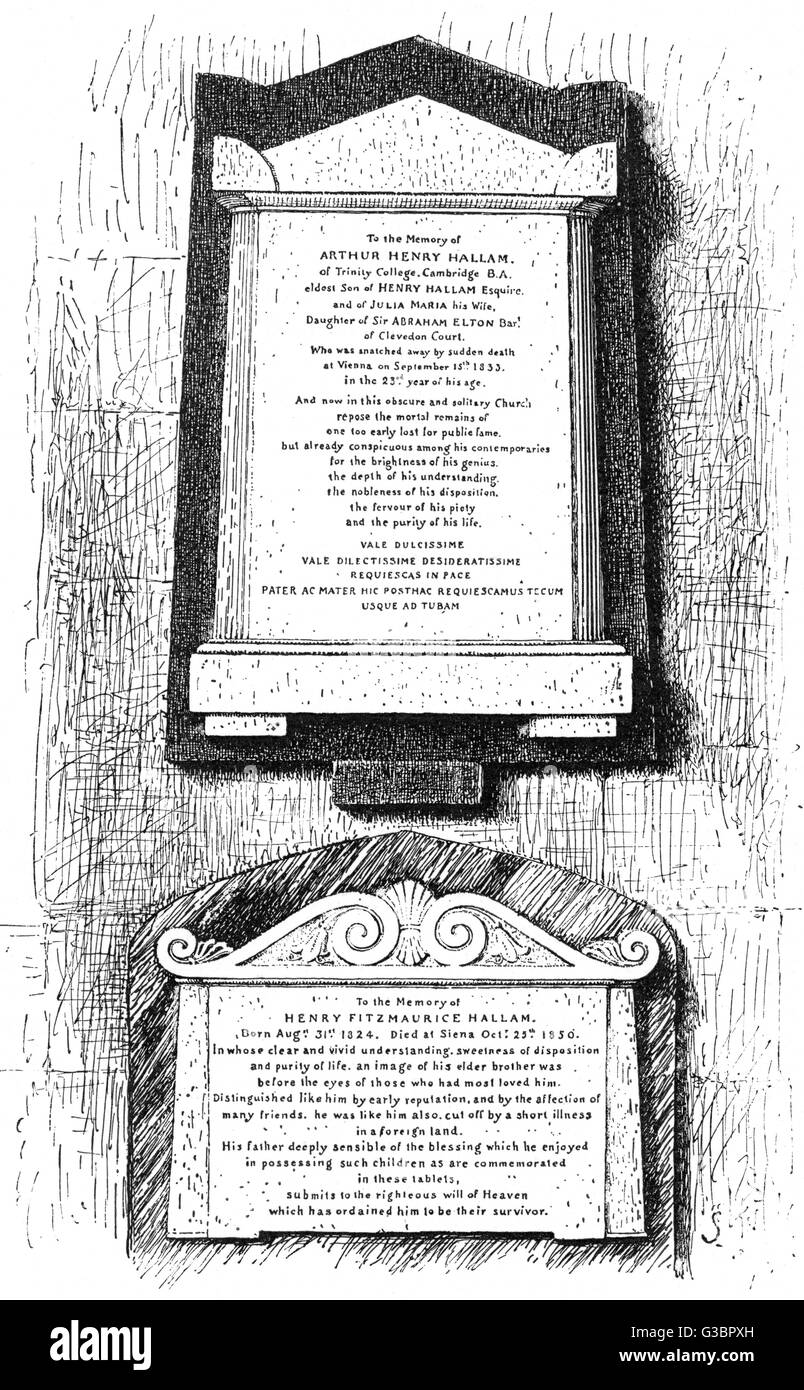 To the Memory of
ARTHUR HENRY HALLAM.
of Trinity College. Cambridge B.A.
eldest Son of HENRY HALLAM Esquire.
and of JULIA MARIA his Wife,
Daughter of Sir ABRAHAM ELTON Bart.
of Clevedon Court.
Who was snatched away by sudden death
at Vienna on September 15th 1833.
in the 23rd year of his age.
And now in this obscure and solitary Church
repose the mortal remains of
one too early lost for public fame.
but already conspicuous among his contemporaries
for the brightness of his genius.
the depth of his understanding.
the nobleness of his disposition.
the fervour of his piety
and the purity of his life.
VALE DULCISSIME
VALE DILECTISSIME DESIDERATISSIME
REQUIESCAS IN PACE
PATER AC MATER HIC POSTHAC REQUIESCAMUS TECUM
USQUE AD TUBAM
To the Memory of
HENRY FITZMAURICE HALLAM.
Born Augst 31st 1824. Died at Siena Octr 25th 1850.
In whose clear and vivid understanding. sweetness of disposition
and purity of life. an image of his elder brother was
before the eyes of those who had most loved him.
Distinguished like him by early reputation, and by the affection of
many friends. he was like him also. cut off by a short illness
in a foreign land.
His father deeply sensible of the blessing which he enjoyed
in possessing such children as are commemorated
in these tablets,
submits to the righteous will of Heaven
which has ordained him to be their survivor.
S.
alamy
Image ID: G3BPXH
www.alamy.com